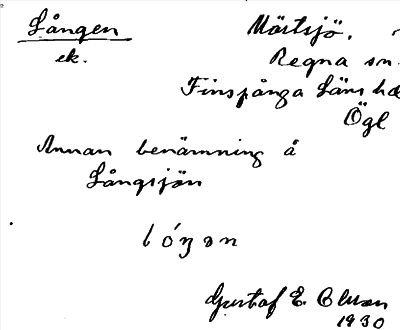 Lången
Mörtsjö.
ek.
Regna sn
Finspånga Läns hä
Ögl
Annan benämning å
Långsjön
lóŋən
Gustaf E. Olsson
1930